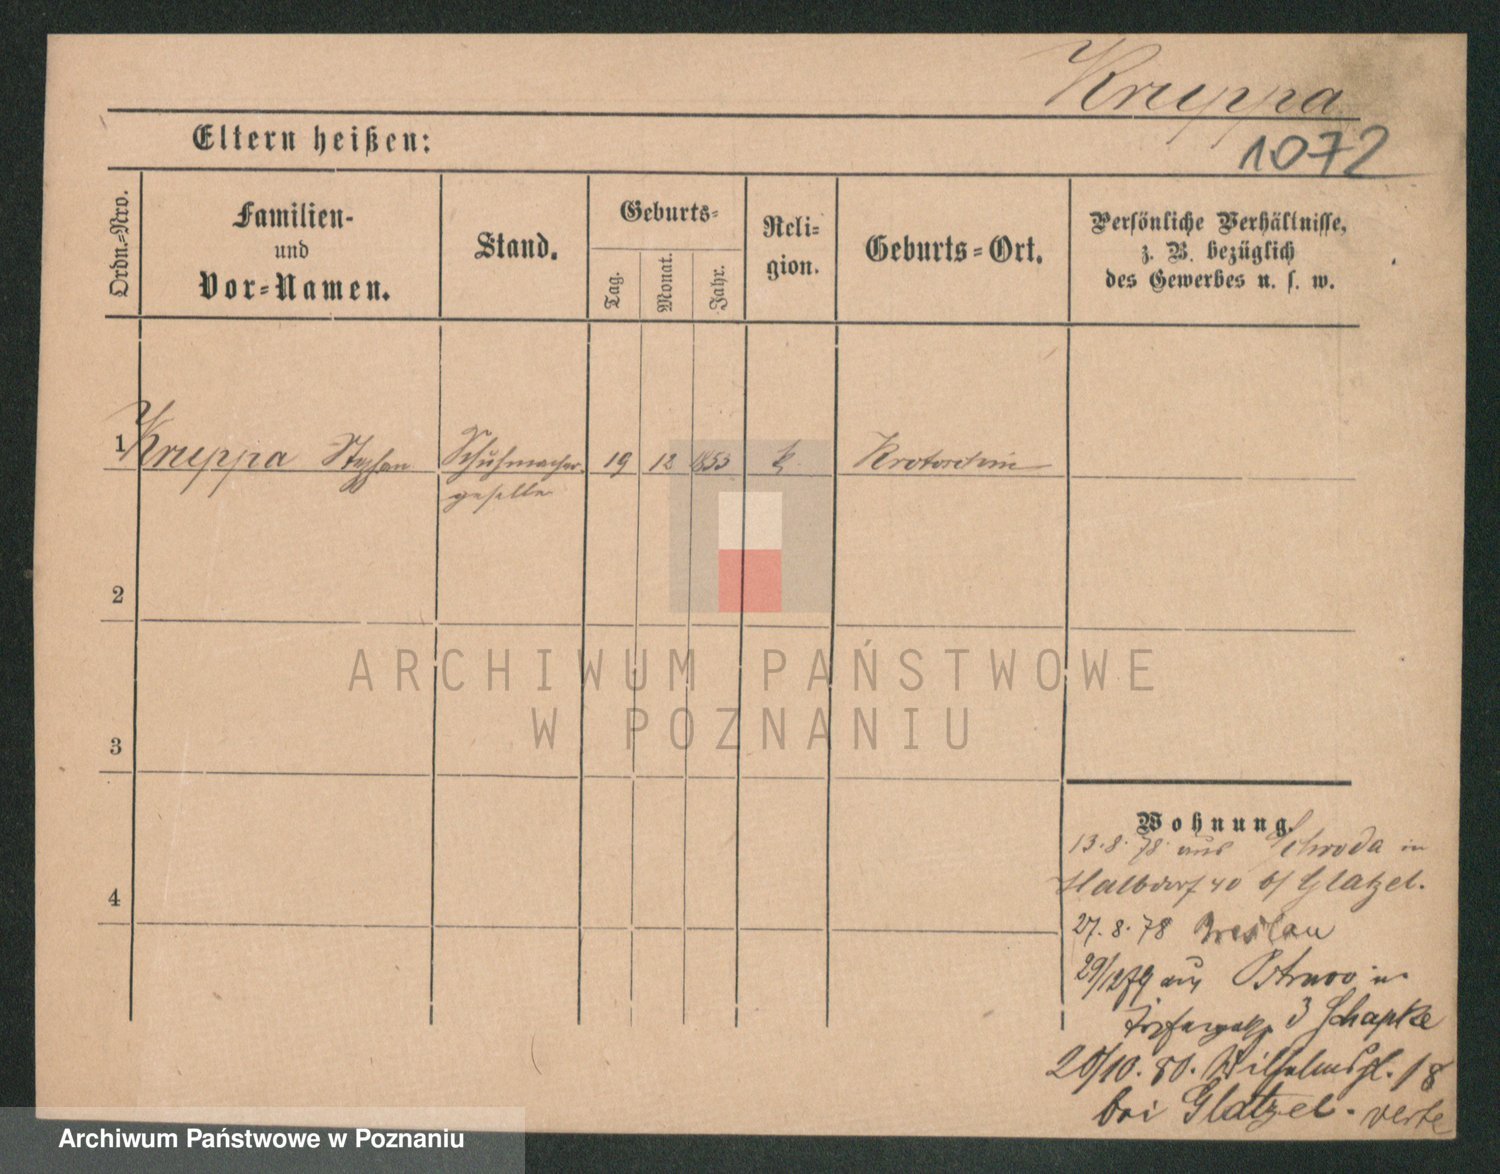 Kruppa
1072
Eltern heißen:
Ordn.=Nro.
Familien-
und
Vor=Namen.
Stand.
Geburts=
Tag.
Monat.
Jahr.
Reli=
gion.
Geburts=Ort.
Persönliche Verhältnisse,
z. B. bezüglich
des Gewerbes u. s. w.
1 Kruppa Stephan Schuhmacher- 19 12 1853 k. Krotoschin
geselle
2
3
4
ARCHIWUM PAŃSTWOWE
W POZNANIU
Wohnung.
13.8.78. aus Schroda in
Halbdorf 40 b/ Glatzel.
27.8.78 Breslau
29/12 79 aus Ostrowo in
3 Schapke
20/10.80. Wilhelmspl. 18
bei Glatzel. verte
Archiwum Państwowe w Poznaniu